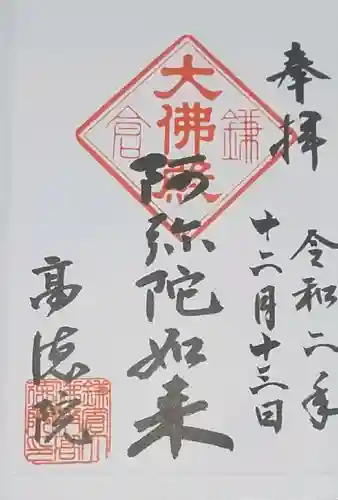 奉拝
令和二年
十二月十三日
大佛殿
鎌倉
阿弥陀如来
高徳院